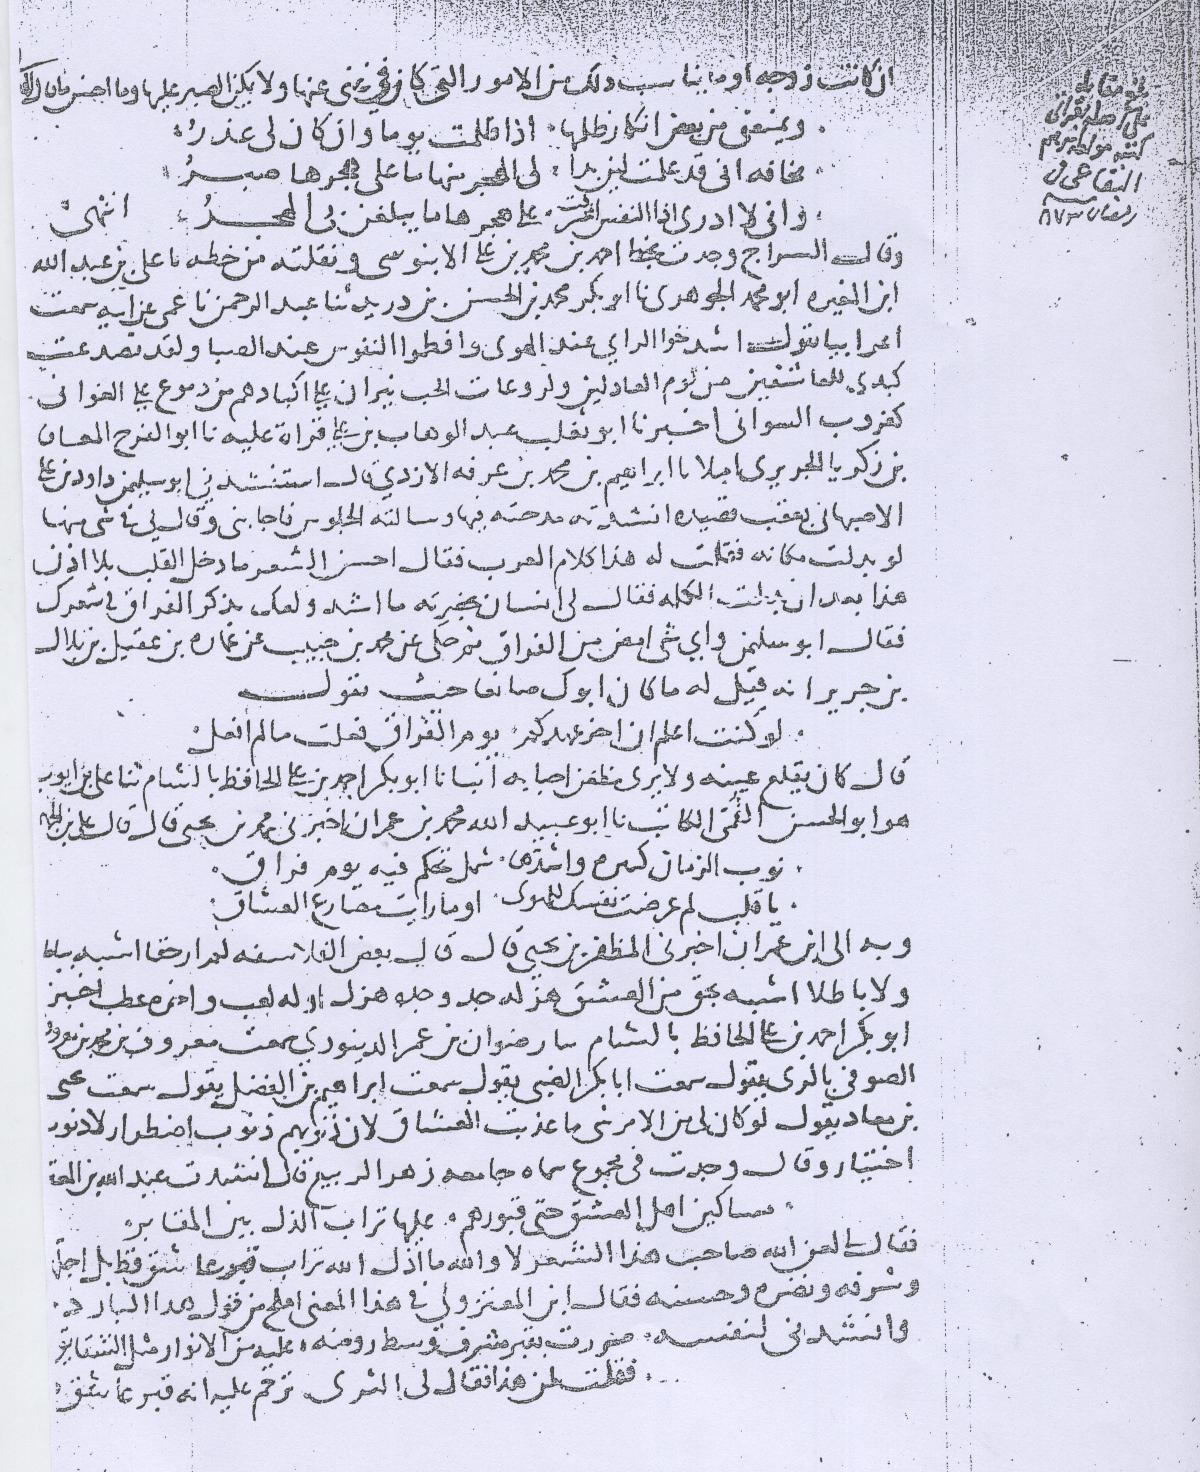 ان كانت زوجه او ما يناسب ذلك من الامور التي كان في غنى عنها ولا يمكن الصبر عليها وما احسن ما قال
ويمنعني من بعض انكار ظلمها اذا ظلمت يوما وان كان لي عذر
مخافة اني قد علمت لئن بدا لي الهجر منها ما على هجرها صبر
واني لا ادري اذا النفس اشرفت على هجرها ما يبلغن بي الهجر انتهى
وقال السراج وجدت بخط احمد بن محمد بن علي الابنوسي ونقلته من خطه نا علي بن عبد الله
ابن المغيره ابو محمد الجوهري نا ابو بكر محمد بن الحسن بن دريد ثنا عبد الرحمن نا عمي عن ابيه سمعت
اعرابيا يقول اشدخوا الراي عند الهوى وافطموا النفوس عند الصبا ولقد تصدعت
كبدي للعاشقين من لوم العاذلين ولروعات الحب نيران على اكبادهم من دموع على الغواني
كغروب السواني اخبرنا ابو تغلب عبد الوهاب بن علي قراة عليه نا ابو الفرج المعافا
بن زكريا الجريري املا نا ابراهيم بن محمد بن عرفه الازدي قال استنشدني ابو سليمن داود بن علي
الاصبهاني بعقب قصيده انشدته مدحته فيها وسالته الجلوس فاجابني وقال لي في شي منها
لو بدلت مكانه فقلت له هذا كلام العرب فقال احسن الشعر ما دخل القلب بلا اذن
هذا بعد ان بدلت الكلمه فقال لي انسان بحضرته ما اشد ولعك بذكر الفراق في شعرك
فقال ابو سليمن واي شي امض من الفراق ثم حكى عن محمد بن حبيب عن عماره بن عقيل بن بلال
بن جرير انه قيل له ما كان ابوك صانعا حيث يقول
لو كنت اعلم ان اخر عهدكم يوم الفراق فعلت ما لم افعل
قال كان يقلع عينه ولا يرى مظعن احبابه انبانا ابو بكر احمد بن علي الحافظ بالشام ثنا علي بن ايوب
هو ابو الحسن القمي الكاتب نا ابو عبيد الله محمد بن عمران اخبرني محمد بن يحيى قال قال علي بن الجهم
نوب الزمان كثيره واشدها شمل تحكم فيه يوم فراق
يا قلب لم عرضت نفسك للهوى اوما رايت مصارع العشاق
وبه الى ابن عمران اخبرني المظفر بن يحيى قال قال بعض الفلاسفه لم ار حقا اشبه بباطل
ولا باطلا اشبه بحق من العشق هزله جد وجده هزل اوله لعب واخره عطب اخبرنا
ابو بكر احمد بن علي الحافظ بالشام نا رضوان بن عمر الدينوري سمعت معروف بن محمد بن معروف
الصوفي بالري يقول سمعت ابا بكر الضبي يقول سمعت ابراهيم بن الفضل يقول سمعت يحيى
بن معاذ يقول لو كان لي من الامر شي ما عذبت العشاق لان ذنوبهم ذنوب اضطرار لا ذنوب
اختيار وقال وجدت في مجموع سماه جامعه زهر الربيع قال انشدت عبد الله بن المعتز
مساكين اهل العشق حتى قبورهم عليها تراب الذل بين المقابر
فقال لعن الله صاحب هذا الشعر لا والله ما اذل الله تراب قبور عاشق قط بل اجله
وشرفه ونضره وحسنه فقال ابن المعتز ولي في هذا المعنى املح من قول هذا البارد
وانشدني لنفسه مررت بقبر مشرق وسط روضه عليه من الانوار مثل الشقايق
فقلت لمن هذا فقال لي الثرى ترحم عليه انه قبر عاشق
بلغ مقابله
على اصله فقراني
البقاعي في
رمضان ٨٧٣